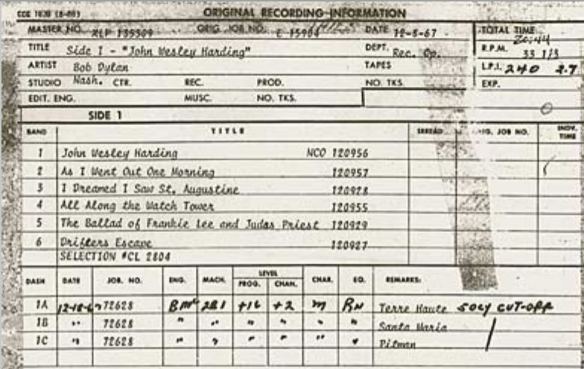 CCC 1030 ORIGINAL RECORDING INFORMATION
MASTER NO. XLP 135309 ORIG. JOB NO. DATE 12-8-67 TOTAL TIME
TITLE Side 1 - "John Wesley Harding" DEPT. Rec. Op. R.P.M. 33 1/3
ARTIST Bob Dylan TAPES L.P.I. 240 2.7
STUDIO Nash. CTR. REC. PROD. NO. TKS. EXP.
EDIT. ENG. MUSC. NO. TKS.
SIDE 1
BAND TITLE SPREAD ORIG. JOB NO. INDV. TIME
1 John Wesley Harding NCO 120956
2 As I Went Out One Morning 120957
3 I Dreamed I Saw St. Augustine 120928
4 All Along the Watch Tower 120955
5 The Ballad of Frankie Lee and Judas Priest 120929
6 Drifters Escape 120927
SELECTION #CL 2804
DASH DATE JOB. NO. ENG. MACH. LEVEL PROG. CHAN. CHAR. EQ. REMARKS:
1A 12-18-67 72628 2B1 +16 +2 M RN Terre Haute 50cy CUT-OFF
1B " 72628 " " " " " " Santa Maria
1C " 72628 " " " " " " Pitman